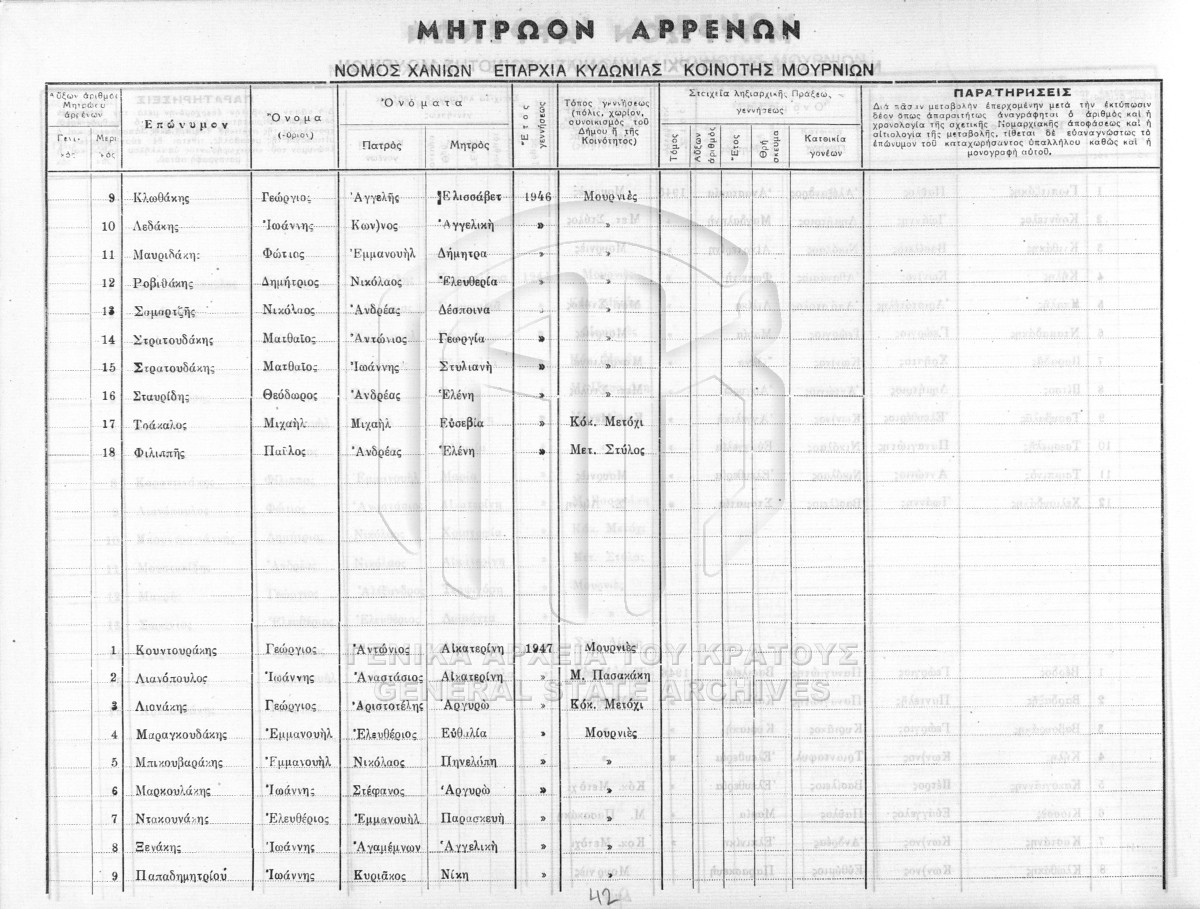 ΜΗΤΡΩΟΝ ΑΡΡΕΝΩΝ
ΝΟΜΟΣ ΧΑΝΙΩΝ ΕΠΑΡΧΙΑ ΚΥΔΩΝΙΑΣ ΚΟΙΝΟΤΗΣ ΜΟΥΡΝΙΩΝ
Αὔξων ἀριθμὸς Μητρώου ἀρρένων
Γενικὸς
Μερικὸς
Ἐπώνυμον
Ὄνομα (κύριον)
Ὀνόματα
Πατρὸς
Μητρὸς
Ἔτος γεννήσεως
Τόπος γεννήσεως (πόλις, χωρίον, συνοικισμὸς τοῦ Δήμου ἢ τῆς Κοινότητος)
Στοιχεῖα ληξιαρχικῆς Πράξεως γεννήσεως
Τόμος
Αὔξων ἀριθμὸς
Ἔτος
Θρήσκευμα
Κατοικία γονέων
ΠΑΡΑΤΗΡΗΣΕΙΣ
Διὰ πᾶσαν μεταβολὴν ἐπερχομένην μετὰ τὴν ἐκτύπωσιν
δέον ὅπως ἀπαραιτήτως ἀναγράφηται ὁ ἀριθμὸς καὶ ἡ
χρονολογία τῆς σχετικῆς Νομαρχιακῆς ἀποφάσεως καὶ ἡ
αἰτιολογία τῆς μεταβολῆς, τίθεται δὲ εὐαναγνώστως τὸ
ἐπώνυμον τοῦ καταχωρήσαντος ὑπαλλήλου καθὼς καὶ ἡ
μονογραφὴ αὐτοῦ.
9 Κλωθάκης Γεώργιος Ἀγγελῆς Ἐλισσάβετ 1946 Μουρνιὲς
10 Λεδάκης Ἰωάννης Κων)νος Ἀγγελικὴ » »
11 Μαυριδάκης Φώτιος Ἐμμανουὴλ Δήμητρα » »
12 Ροβιθάκης Δημήτριος Νικόλαος Ἐλευθερία » »
13 Σαμαρτζῆς Νικόλαος Ἀνδρέας Δέσποινα » »
14 Στρατουδάκης Ματθαῖος Ἀντώνιος Γεωργία » »
15 Στρατουδάκης Ματθαῖος Ἰωάννης Στυλιανὴ » »
16 Σταυρίδης Θεόδωρος Ἀνδρέας Ἑλένη » »
17 Τσάκαλος Μιχαὴλ Μιχαὴλ Εὐσεβία » Κόκ. Μετόχι
18 Φιλιππῆς Παῦλος Ἀνδρέας Ἑλένη » Μετ. Στύλος
1 Κουντουράκης Γεώργιος Ἀντώνιος Αἰκατερίνη 1947 Μουρνιὲς
2 Λιανόπουλος Ἰωάννης Ἀναστάσιος Αἰκατερίνη » Μ. Πασακάκη
3 Λιονάκης Γεώργιος Ἀριστοτέλης Ἀργυρὼ » Κόκ. Μετόχι
4 Μαραγκουδάκης Ἐμμανουὴλ Ἐλευθέριος Εὐθαλία » Μουρνιὲς
5 Μπικουβαράκης Ἐμμανουὴλ Νικόλαος Πηνελόπη » »
6 Μαρκουλάκης Ἰωάννης Στέφανος Ἀργυρὼ » »
7 Ντακουνάκης Ἐλευθέριος Ἐμμανουὴλ Παρασκευὴ » »
8 Ξενάκης Ἰωάννης Ἀγαμέμνων Ἀγγελικὴ » »
9 Παπαδημητρίου Ἰωάννης Κυριᾶκος Νίκη » »
ΓΕΝΙΚΑ ΑΡΧΕΙΑ ΤΟΥ ΚΡΑΤΟΥΣ
GENERAL STATE ARCHIVES
42